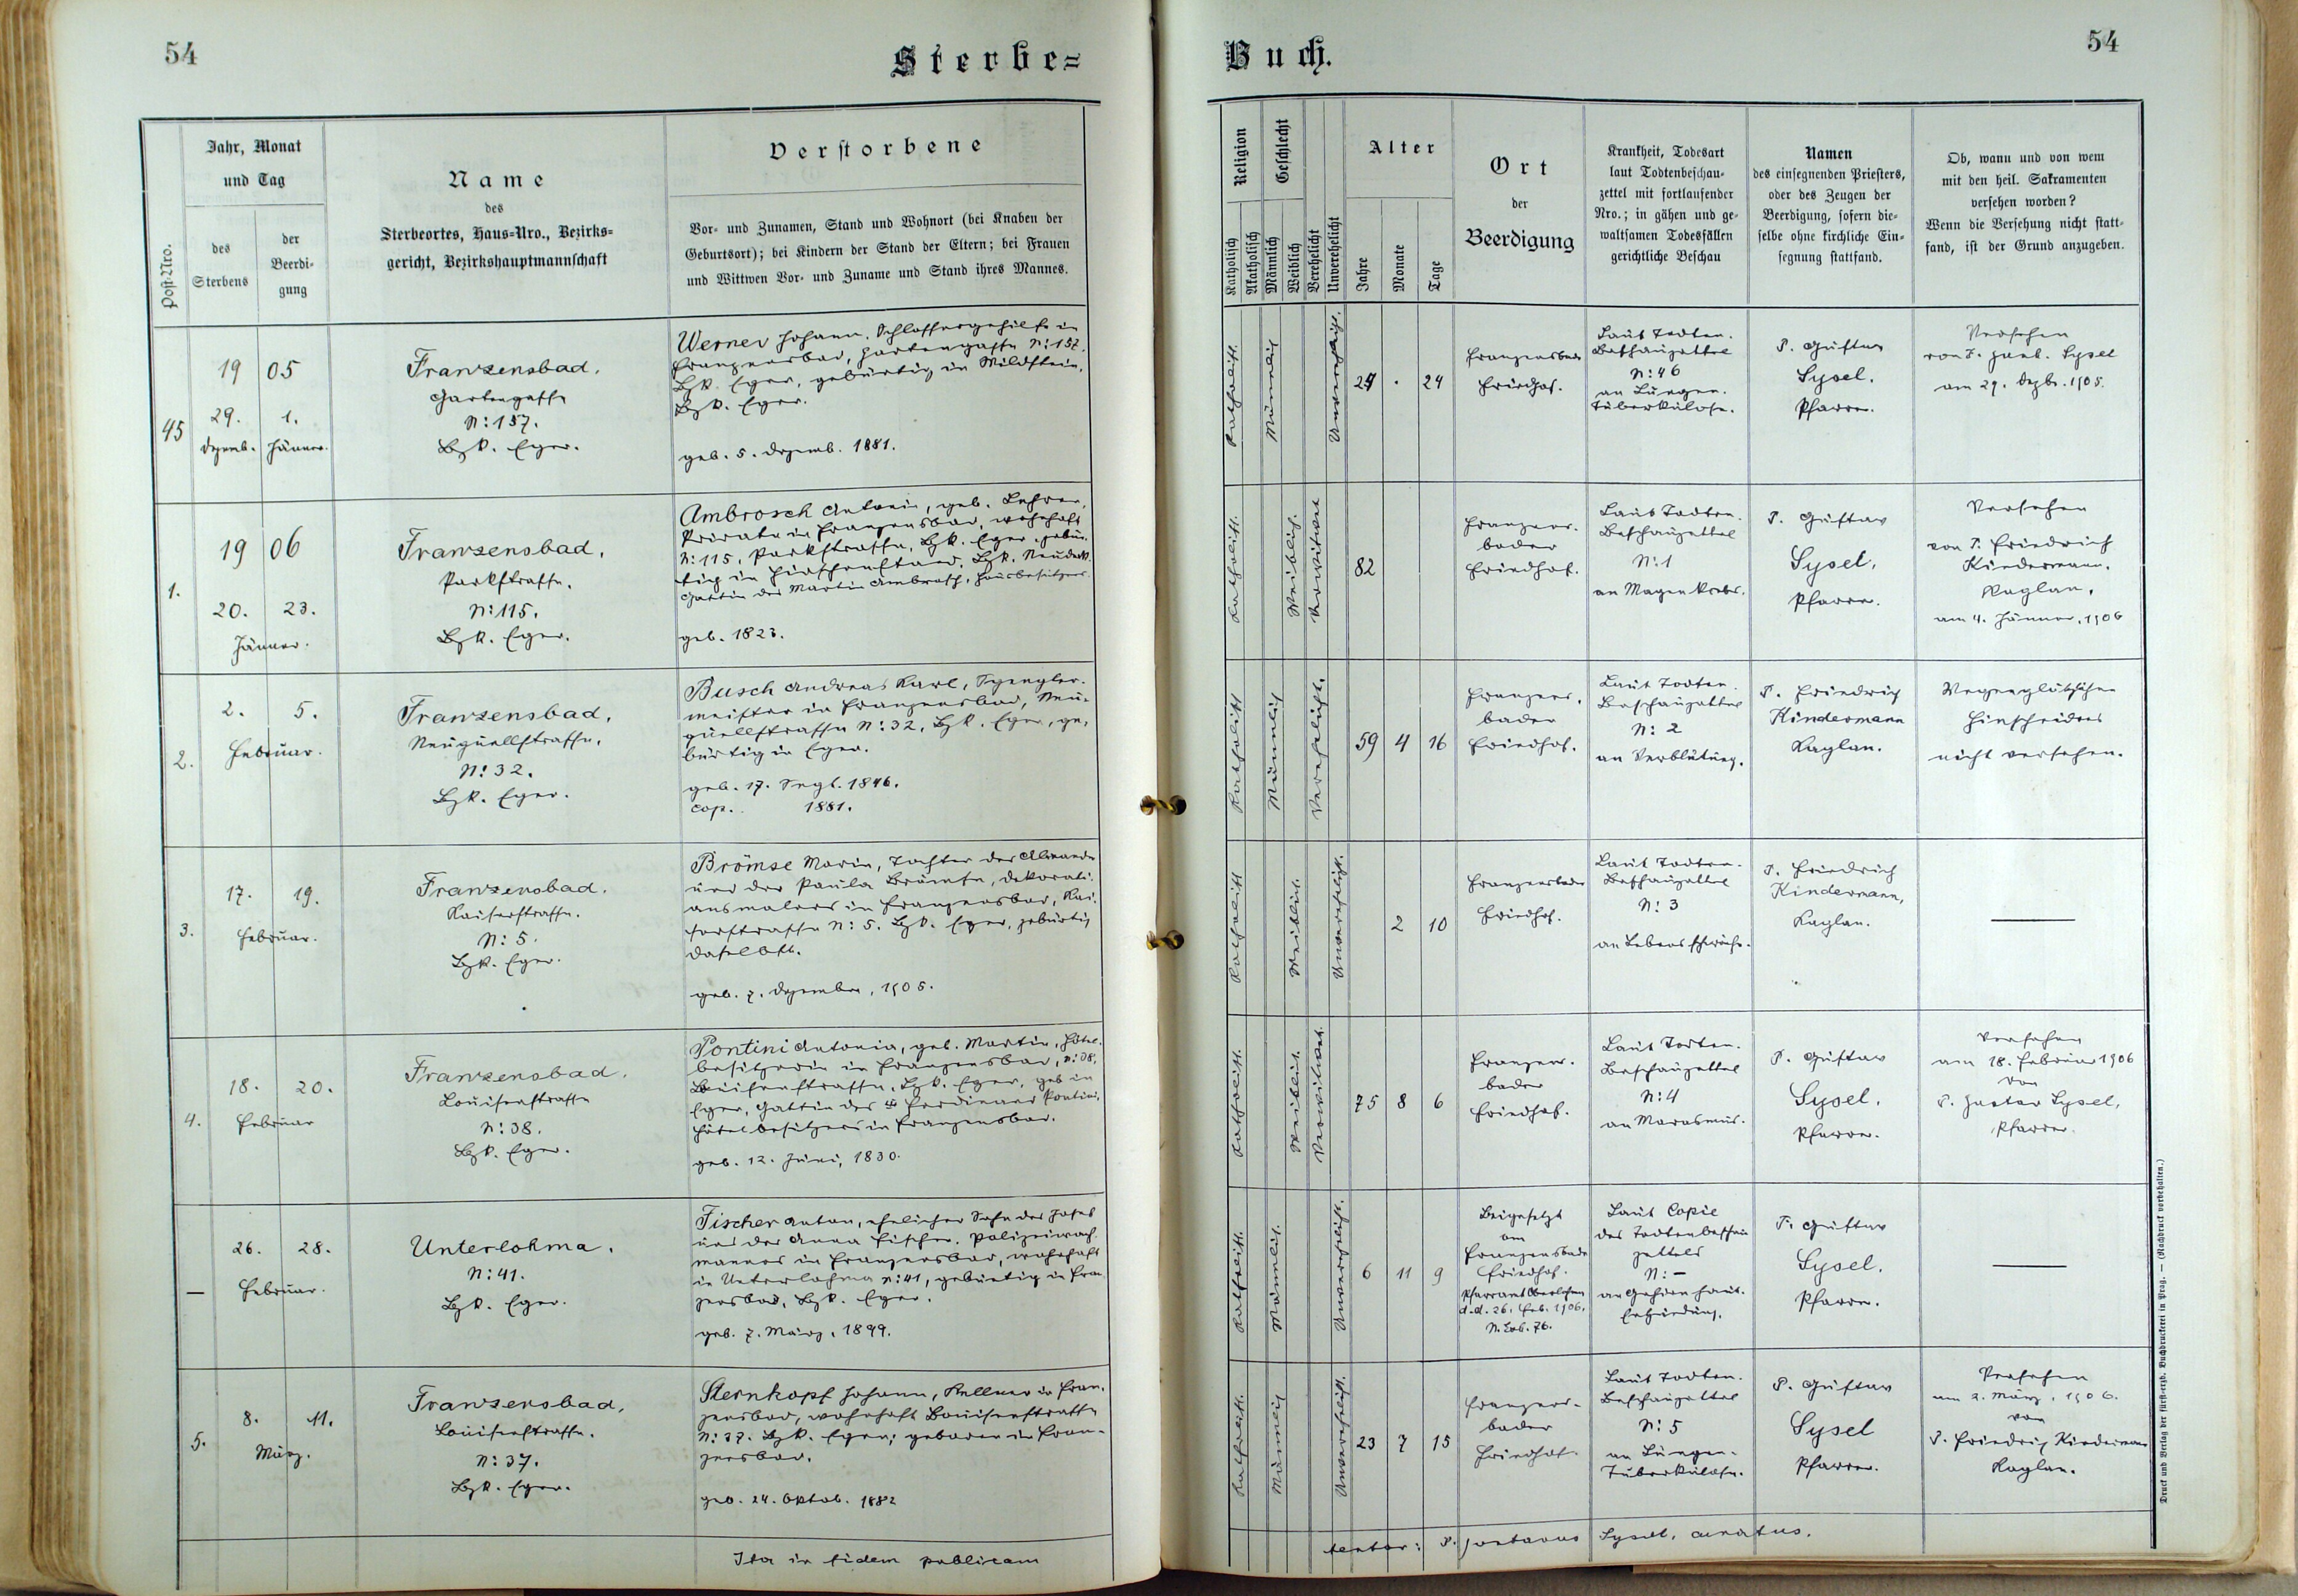 54
Sterbe=
Post-Nro.
Jahr, Monat
und Tag
des
Sterbens
der
Beerdi-
gung
Name
des
Sterbeortes, Haus=Nro., Bezirks=
gericht, Bezirkshauptmannschaft
Verstorbene
Vor- und Zunamen, Stand und Wohnort (bei Knaben der
Geburtsort); bei Kindern der Stand der Eltern; bei Frauen
und Wittwen Vor- und Zuname und Stand ihres Mannes.
45
19 05
29. 1.
Dezemb. Jänner.
Franzensbad.
Gartengasse
N: 157.
Bzk. Eger.
Werner Johann, Schlossergehilfe in
Franzensbad, Gartengasse N: 157.
Bzk. Eger, gebürtig in Wildstein,
Bzk. Eger.
geb. 5. Dezemb. 1881.
1.
19 06
20. 23.
Jänner.
Franzensbad,
Parkstrasse.
N: 115.
Bzk. Eger.
Ambrosch Antonia, geb. Lehrer,
Private in Franzensbad, wohnhaft
N: 115, Parkstrasse, Bzk. Eger, gebür-
tig in Hirschenstand, Bzk. Neudek
Gattin des Martin Ambrosch, Hausbesitzers.
geb. 1823.
2.
2. 5.
Februar.
Franzensbad,
Neuquellstrasse,
N: 32.
Bzk. Eger.
Busch Andreas Karl, Spengler-
meister in Franzensbad, Neu-
quellstrasse N: 32, Bzk. Eger, ge-
bürtig in Eger.
geb. 17. Sept. 1846.
cop. 1881.
3.
17. 19.
Februar.
Franzensbad.
Kaiserstrasse.
N: 5.
Bzk. Eger.
Brömse Maria, Tochter des
und der Paula Brömse, Dekorati-
onsmalers in Franzensbad, Kai-
serstrasse N: 5. Bzk. Eger, gebürtig
daselbst.
geb. 7. Dezember, 1905.
4.
18. 20.
Februar
Franzensbad.
Louisenstrasse
N: 38.
Bzk. Eger.
Pontini Antonia, geb. Martin, Hôtel-
besitzerin in Franzensbad, N: 38,
Louisenstrasse, Bzk. Eger, geb in
Eger, Gattin des Ferdinand Pontini,
Hôtelbesitzers in Franzensbad.
geb. 12. Juni, 1830.
—
26. 28.
Februar.
Unterlohma.
N: 41.
Bzk. Eger.
Fischer Anton, ehelicher Sohn des Josef
und der Anna Fischer, Polizeiwach-
mannes in Franzensbad, wohnhaft
in Unterlohma N: 41, gebürtig in Fran-
zensbad, Bzk. Eger.
geb. 7. März, 1899.
5.
8. 11.
März.
Franzensbad,
Louisenstrasse.
N: 37.
Bzk. Eger.
Sternkopf Johann, Kellner in Fran-
zensbad, wohnhaft Louisenstrasse
N: 37. Bzk. Eger; geboren in Fran-
zensbad.
geb. 24. Oktob. 1882
Ita in fidem publicam
Buch.
54
Religion
Katholisch
Akatholisch
Geschlecht
Männlich
Weiblich
Verehelicht
Unverehelicht
Alter
Jahre
Monate
Tage
Ort
der
Beerdigung
Krankheit, Todesart
laut Todtenbeschau-
zettel mit fortlaufender
Nro.; in gähen und ge-
waltsamen Todesfällen
gerichtliche Beschau
Namen
des einsegnenden Priesters,
oder des Zeugen der
Beerdigung, sofern die-
selbe ohne kirchliche Ein-
segnung stattfand.
Ob, wann und von wem
mit den heil. Sakramenten
versehen worden?
Wenn die Versehung nicht statt-
fand, ist der Grund anzugeben.
Katholisch.
Männlich
Unverehelicht.
24 . 24
Franzensbad
Friedhof.
Laut Todten-
Beschauzettel
N: 46
an Lungen-
Tuberkulose.
P. Gustav
Sysel.
Pfarrer.
Versehen
von P. Gust. Sysel
am 29. Dezbr. 1905.
Katholisch.
Weiblich.
Verwitwet
82
Franzens-
bader
Friedhof.
Laut Todten-
Beschauzettel
N: 1
an Magenkrebs.
P. Gustav
Sysel,
Pfarrer.
Versehen
von P. Friedrich
Kindermann,
Kaplan,
am 4. Jänner, 1906
Katholisch
Männlich
Verehelicht.
59 4 16
Franzens-
bader
Friedhof.
Laut Todten-
Beschauzettel
N: 2
an Verblutung.
P. Friedrich
Kindermann
Kaplan.
Wegen plötzlichen
Hinscheidens
nicht versehen.
Katholisch
Weiblich.
Unverehelicht.
2 10
Franzensbader
Friedhof.
Laut Todten-
Beschauzettel
N: 3
an Lebensschwäche.
P. Friedrich
Kindermann,
Kaplan.
—
Katholisch.
Weiblich.
Verwitwet.
75 8 6
Franzens-
bader
Friedhof.
Laut Todten-
Beschauzettel
N: 4
an Marasmus.
P. Gustav
Sysel.
Pfarrer.
Versehen
am 18. Februar 1906
von
P. Gustav Sysel,
Pfarrer.
Katholisch.
Männlich.
Unverehelicht.
6 11 9
Beigesetzt
am
Franzensbader
Friedhof.
Pfarramt Oberlohma
d. d. 26. Feb. 1906.
N. Exh. 76.
Laut Copie
des Todtenbeschau
zettels
N: —
an Gehirnhaut-
Entzündung.
P. Gustav
Sysel.
Pfarrer.
—
Katholisch.
Männlich
Unverehelicht.
23 7 15
Franzens-
bader
Friedhof.
Laut Todten-
Beschauzettel
N: 5
an Lungen-
Tuberkulose.
P. Gustav
Sysel
Pfarrer.
Versehen
am 2. März, 1906.
von
P. Friedrich Kindermann
Kaplan.
testor: P. Gustavus Sysel, curatus.
Druck und Verlag der fürsterzb. Buchdruckerei in Prag. — (Nachdruck vorbehalten.)